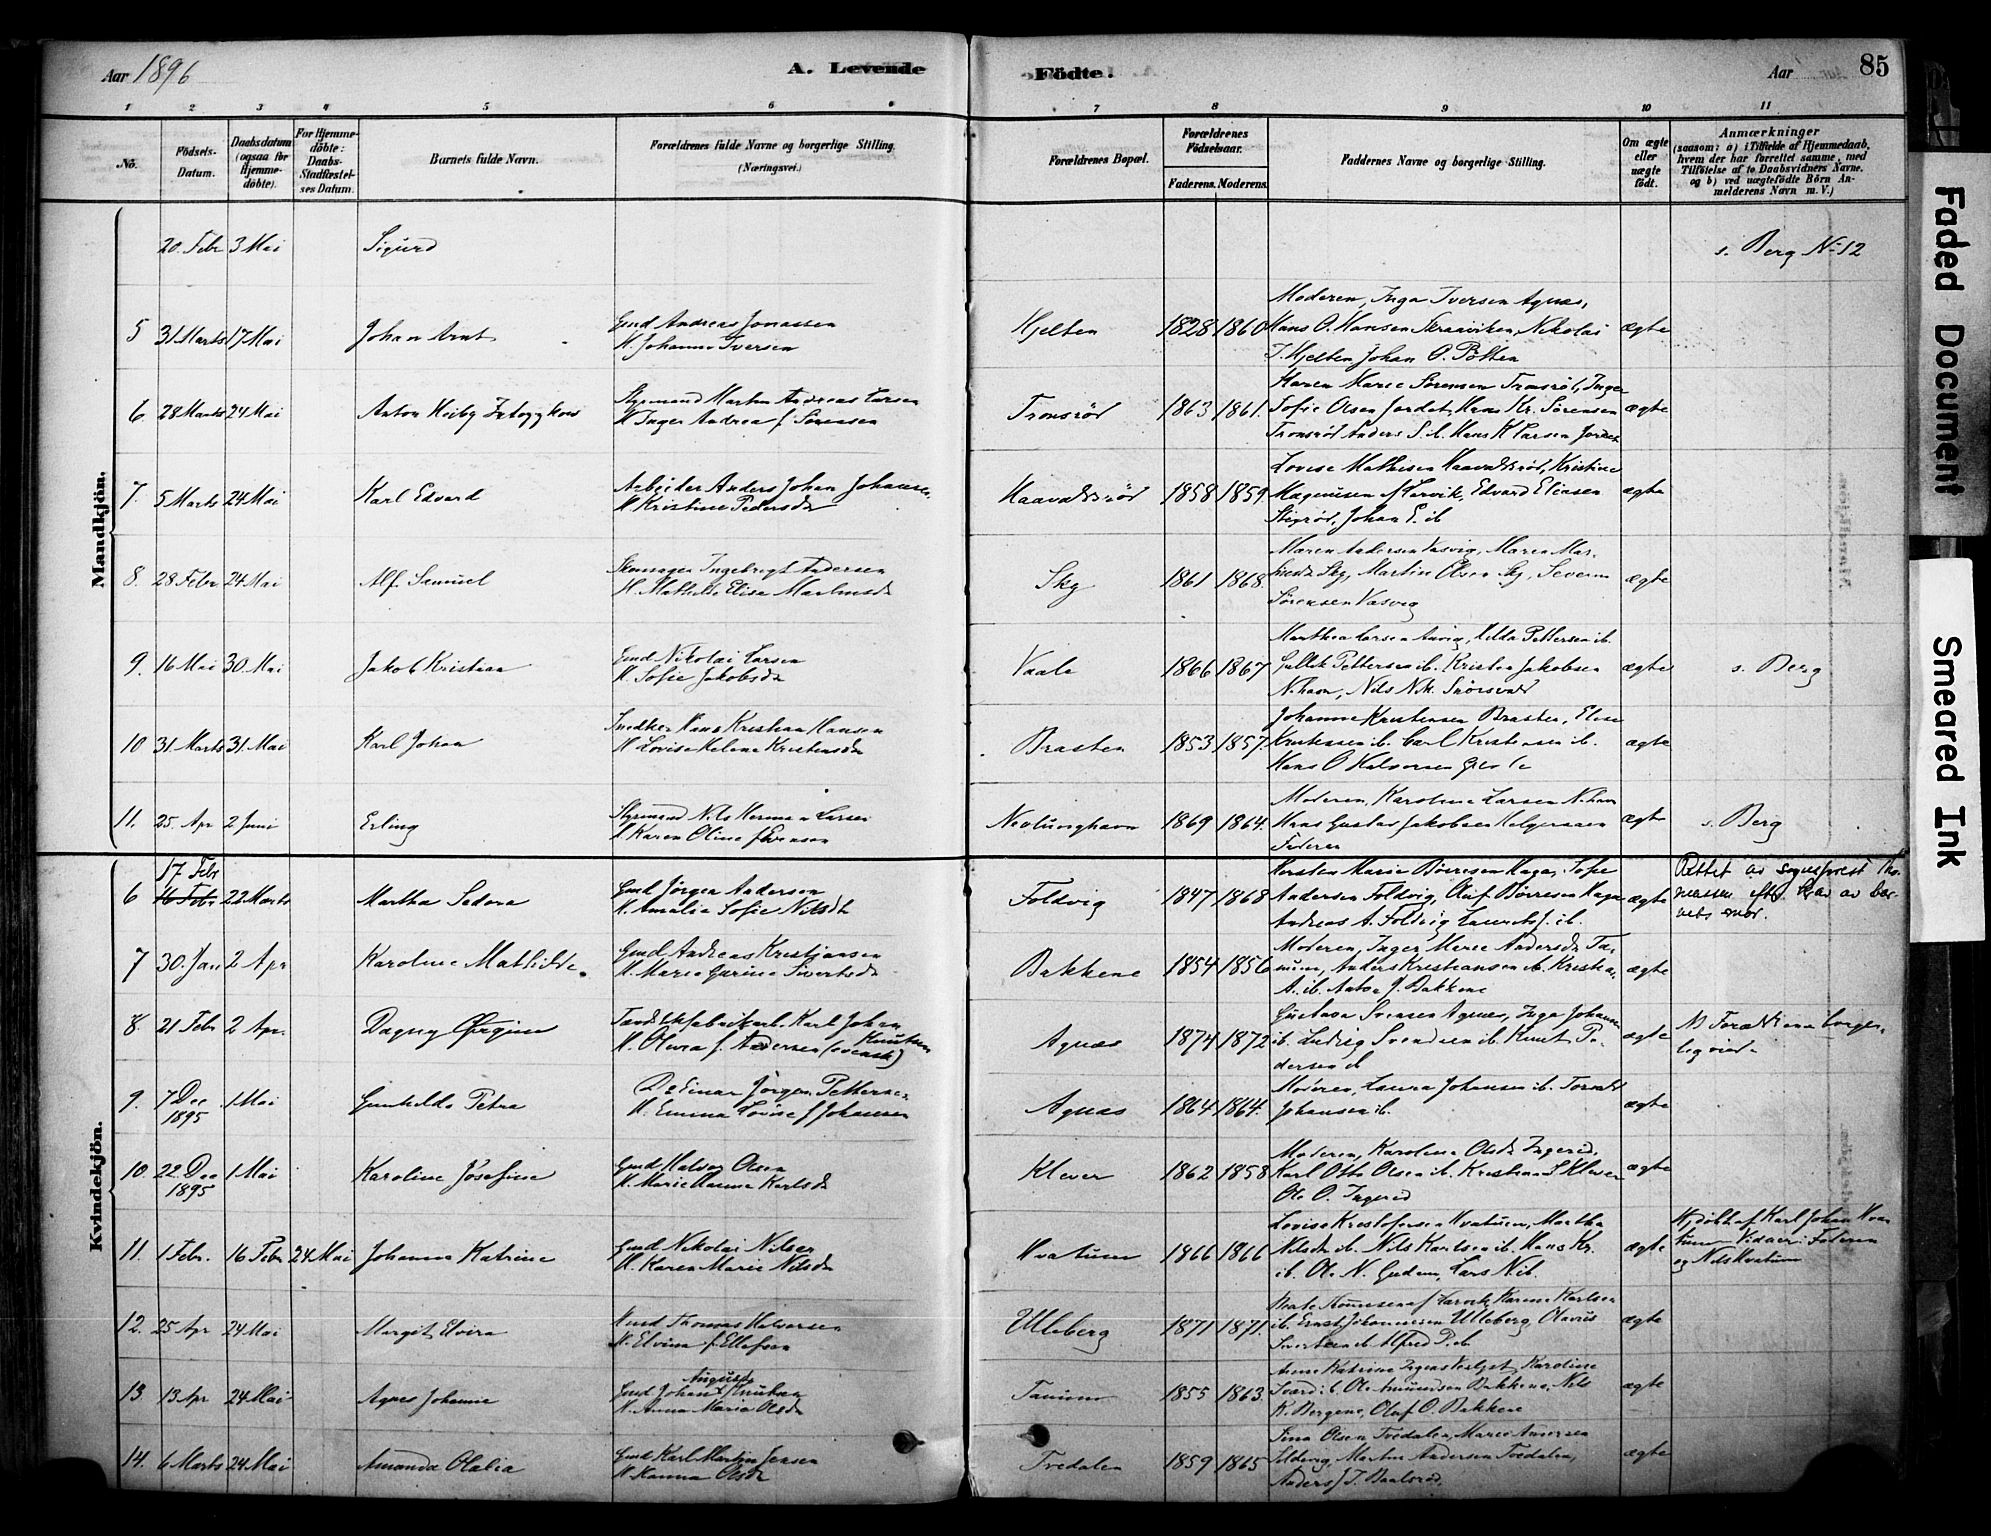 Aar 1896
A. Levende Födte.
Aar
85
1 2 3 4 5 6 6 7 8 9 10 11
No.
Födsels-Datum.
Daabsdatum (ogsaa for Hjemme-döbte).
For Hjemme-döbte: Daabs-Stadfæstel-ses Datum.
Barnets fulde Navn.
Forældrenes fulde Navne og borgerlige Stilling. (Næringsvei.)
Forældrenes Bopæl.
Forældrenes Födselsaar.
Faderens. Moderens.
Faddernes Navne og borgerlige Stilling.
Om ægte eller uægte födt.
Anmærkninger
(saasom: a) i Tilfælde af Hjemmedaab,
hvem der har forrettet samme, med
Tilföielse af to Daabsvidners Navne.
og b) ved uægtefödte Börn An-
melderens Navn m. V.)
Mandkjön.
20. Febr 3 Mai Sigurd s. Berg No 12
5 31 Marts 17 Mai Johan Arnt Gmd Andreas Jonassen
H. Johanne Iversen Hjelten 1828 1860 ægte
Moderen, Inga Iversen Agnæs,
Hans O. Hansen Nikolai
J. Hjelten, Johan O.
6. 28 Marts 24 Mai Anton Styrmand Martin Andreas Larsen
H. Inger Andrea f. Sørensen Tronsrød 1863 1861. ægte
Karen Marie Sørensen Tronsrød, Inger
Sofie Olsen Jordet, Hans Kr. Sørensen
Tronsrød Anders S. ib. Hans K Larsen Jordet
7. 5 Marts 24 Mai Karl Edvard Arbeider Anders Johan Johansen
H Kristine Pedersdr Haavaldsrød 1858 1859. ægte
Lovise Mathisen Haavaldsrød, Kristine
Magnusen f Larvik, Edvard Eliasen
Johan E. ib
8. 28 Febr 24 Mai Alf Samuel Skomager Ingebregt Andersen
H. Mathilde Elise Martinsdr Sky 1861 1868. ægte
Maren Andersen Vasvig, Maren Mar-
Sky, Martin Olsen Sky, Severin
Sørensen Vasvig
9. 16 Mai 30 Mai Jakob Kristian Gmd Nikolai Larsen
H. Sofie Jakobsdr Vaale 1866 1867. ægte s. Berg
Marthea Larsen Hilda Pettersen ib.
Pettersen ib. Kristen Jakobsen
N.havn, Nils N.
10 31. Marts 31. Mai Karl Johan Snedker Hans Kristian Hansen
H Lovise Helene Kristensdr Brasten 1853 1857. ægte
Johanne Kristensen Brasten, Elise
Kristensen ib. Carl Kristensen ib.
Hans O Halvorsen
11. 25. Apr 2 Juni Erling Styrmand Nils Herman Larsen
H Karen Oline Nevlunghavn 1869 1864. ægte s. Berg
Moderen, Karoline Larsen N.havn
Hans Gustav Jakobsen Helgeroaen
Faderen
Kvindekjön.
17 Febr
6 16 Febr 22 Marts Martha Gmd Jörgen Andersen
H. Amalia Sofie Nilsdr Foldvig 1847 1868 ægte
Kersten Marie Børresen Haga, Sofie
Andersen Foldvig, Oluf Børresen Haga
Andreas A. Foldvig Laurits J. ib.
Rettet av sogneprest
efter krav av bar-
nets mor.
7 30. Jan 2 Apr Karoline Mathilde. Gmd Andreas Kristjansen
H. Maren Gurine Sivertsdr Bakkene 1854 1856 ægte
Moderen, Inger Marie Andersdr Ta-
num, Anders Kristiansen ib. Kristia
A. ib. Anton J. Bakkene
8. 21 Febr 2 Apr. Dagny Karl Johan
Knutsen
H. Olivia f. Andersen (svensk) Agnæs 1874 1872 ægte
Gustava Svensen Agnæs, Inga Johansen
ib. Ludvig Svendsen ib. Knut Pe-
dersen ib
Forældrene borger-
lig viet.
9. 7 Dec
1895 1 Mai Gunhilda Petra Jörgen Pettersen
H. Emma Lovise f Johansen Agnæs 1864 1864. ægte
Moderen, Laura Johansen ib. Torvald
Johansen ib.
10. 22 Dec
1895 1 Mai Karoline Josefine Gmd Halvor Olsen
H. Marie Hanna Karlsdr Klever 1862 1858 ægte
Moderen, Karoline Olsdr Ingerid,
Karl Otto Olsen ib. Kristian S Klever
Ole O. Ingerid
11. 1 Febr. 16 Febr 24 Mai Johanna Katrine Gmd Nikolai Nilsen
H. Karen Marie Nilsdr Hvatum 1866 1866 ægte
Lovise Kristofersen Hvatum, Martha
Nilsdr ib. Nils Karlsen ib. Hans Kr.
ib. Ole N. Gudem, Lars N ib.
Hj.døbt af Karl Johan Hva
tum Vidner: Faderen
og Nils Hvatum
12. 25 Apr 24 Mai Margit Elvira Thomas Halvorsen
H. Elvina f. Ellefsen Ulleberg 1871 1871. ægte
Beate Larvik, Karen Karlsen
ib. Ernst Johannesen Ulleberg, Olavus
Sivertsen ib. Alfred P. ib
13. 13 Apr 24 Mai Agnes Johanne Gmd Johan August Knutsen
H. Anna Maria Olsdr Tanum 1855 1863. ægte
Anne Katrine Karoline
ib. Ole Amundsen Bakkene, Nils
K. Bergene, Oluf O. Bakkene
14. 6 Marts 24 Mai Amanda Olalia Gmd Karl Martin Jensen
H Hanna Olsdr Tvedalen 1859 1865 ægte
Sina Olsen Tvedalen, Maren Andersen
Martin Andersen Tvedalen,
Anders J. T.
Faded Document
Smeared Ink